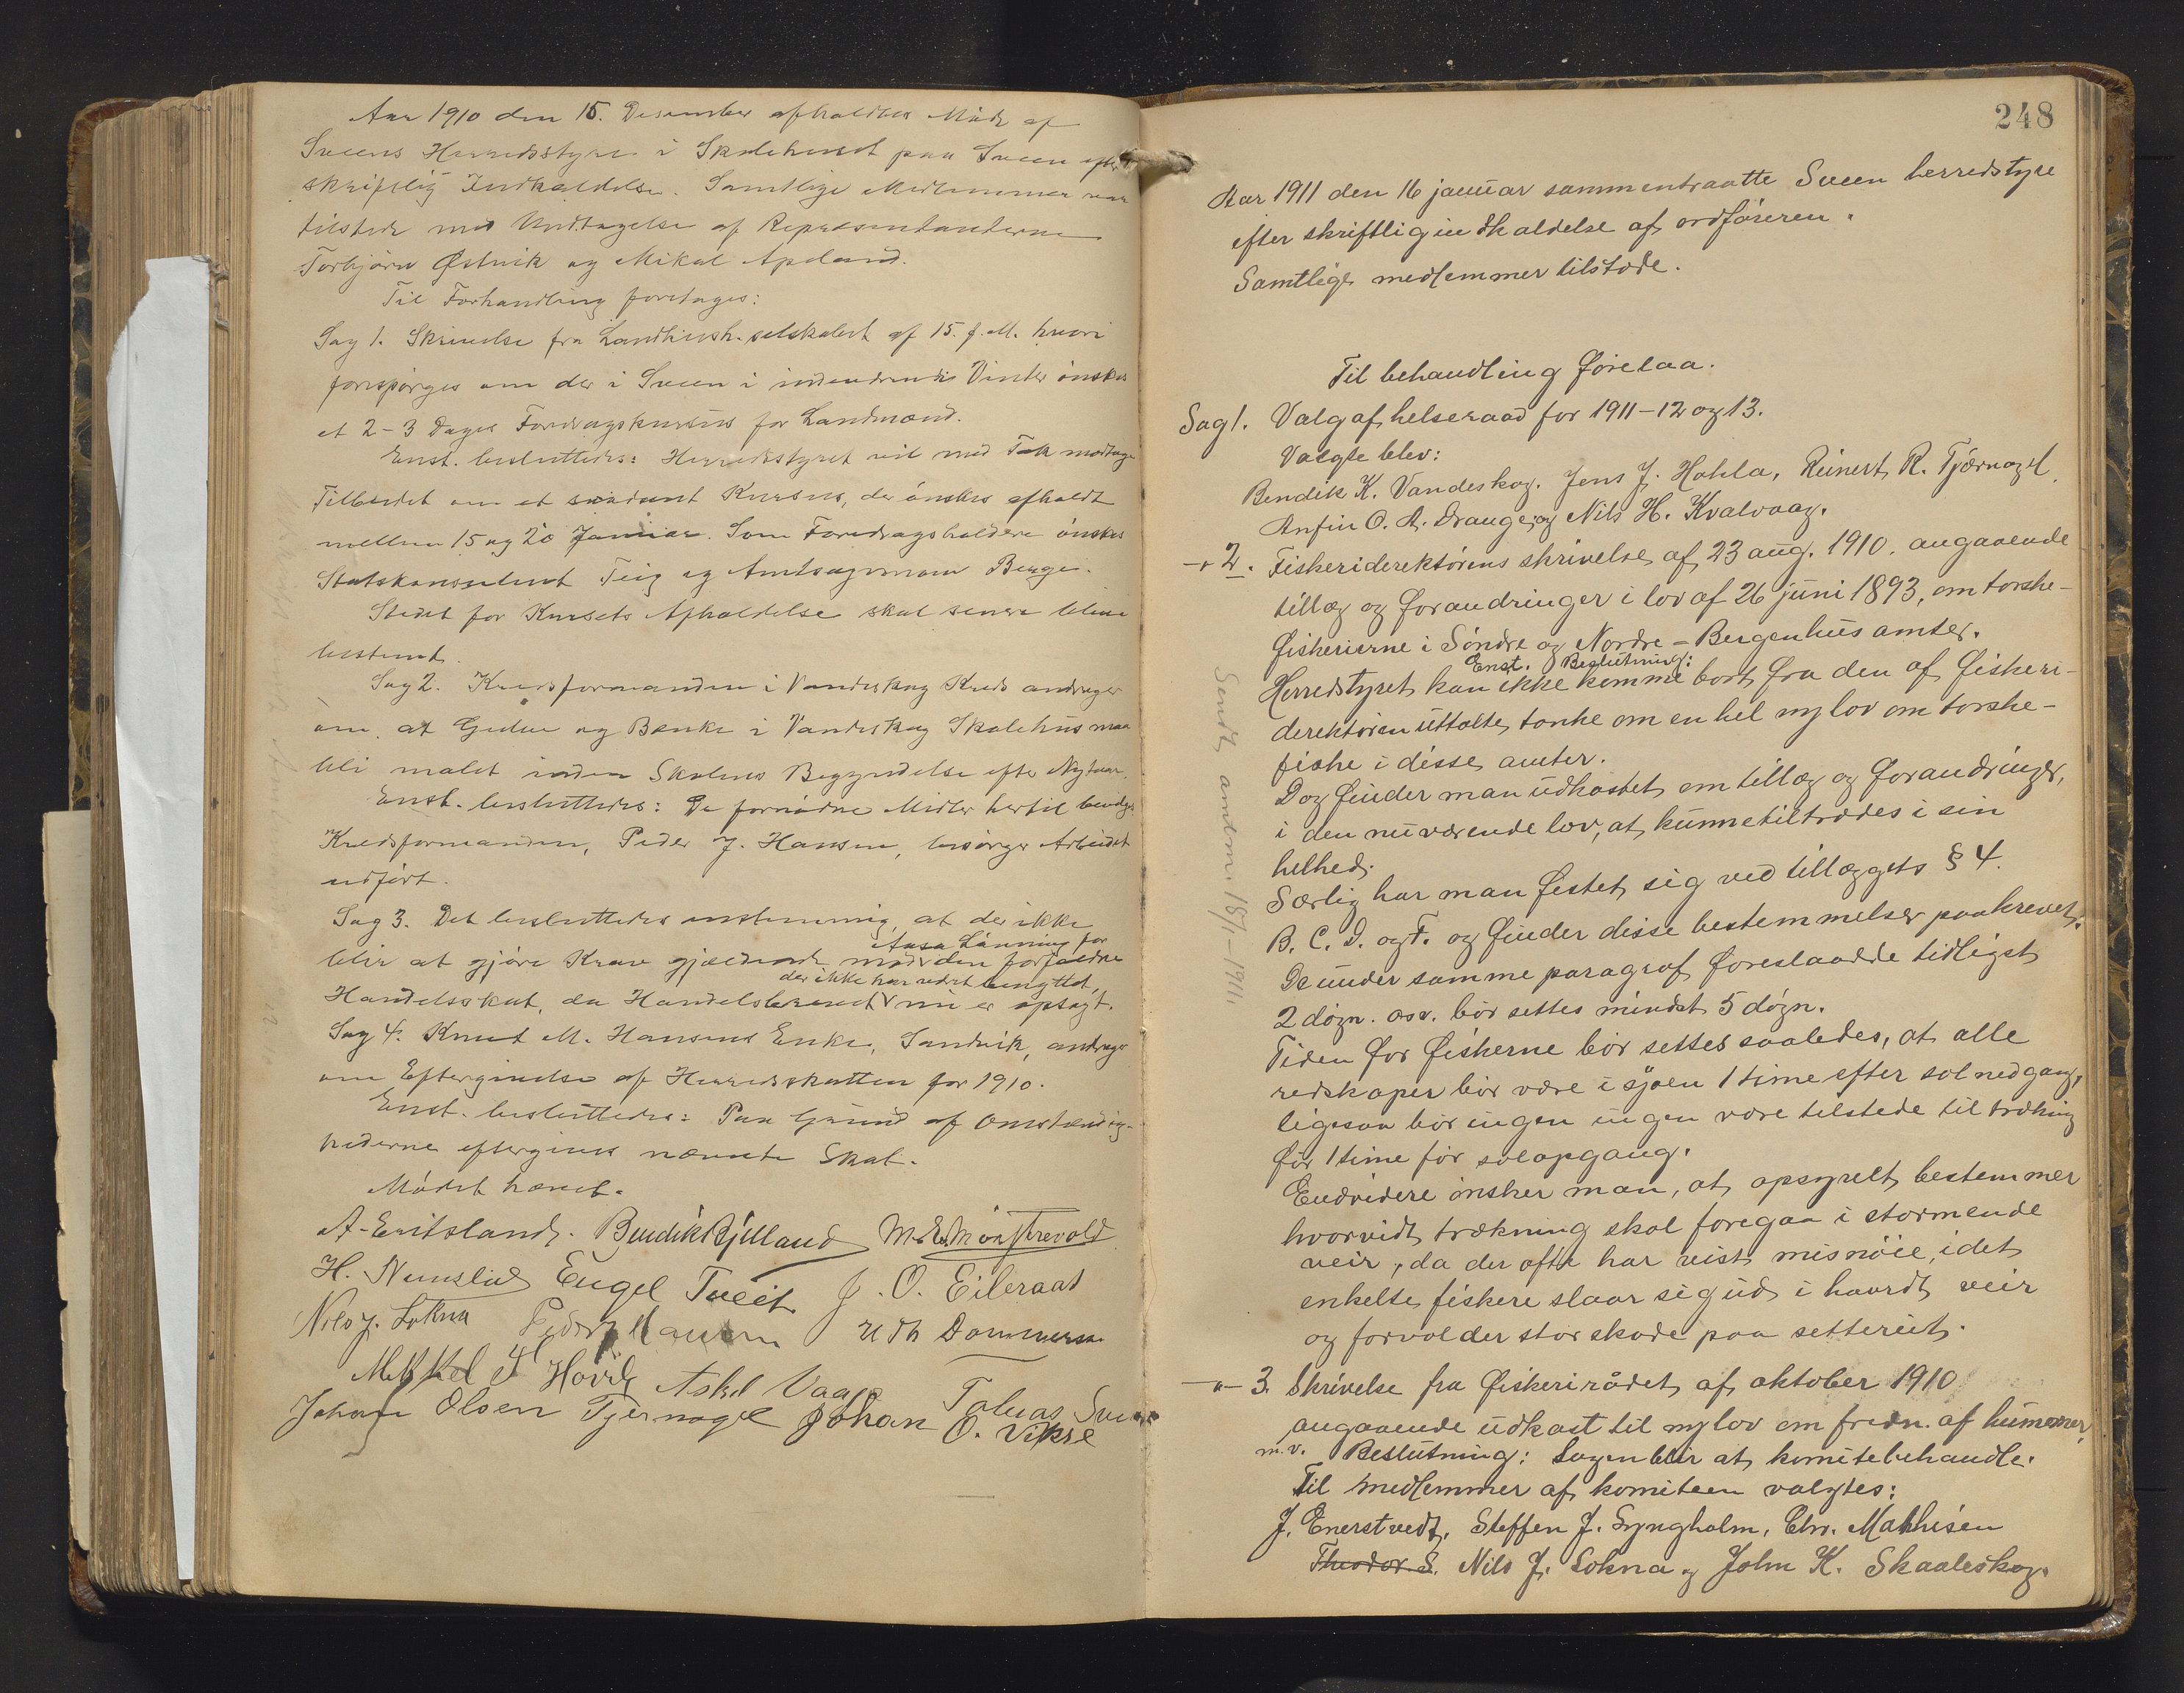 Aar 1910 den 15. Desember afholdtes Møde af
Sveens Herredsstyre i Skolehuset paa Sveen efter
skriftlig Indkaldelse. Samtlige Medlemmer var
tilstede med Undtagelse af Repræsentanterne
Torbjørn Østvik og Mikal Apeland.
Til Forhandling foretages:
Sag 1. Skrivelse fra Landhush. selskabet af 15. f. M. hvori
forespørges om der i Sveen i indeværende Vinter ønskes
et 2-3 Dages Foredragskursus for Landmænd.
Enst. besluttedes: Herredsstyret vil med Tak modtage
Tilbudet om et saadant Kursus, der ønskes afholdt
mellem 15 og 20 Januar. Som Foredragsholdere ønskes
Statskonsulent Teig og Amtsagronom Berge.
Stedet for Kursets Afholdelse skal senere blive
bestemt.
Sag 2. Kredsformanden i Vandeskog Kreds andrager
om at Gulve og Benke i Vandeskog Skolehus maa
bli malet inden Skolens Begyndelse efter Nytaar.
Enst. besluttedes: De fornødne Midler hertil bevilges
Kredsformanden, Peder J. Hansen, besørger Arbeidet
udført.
Sag 3. Det besluttedes enstemmig, at der ikke
blir at gjøre Krav gjældende mod Aasa Lønning for den forfaldne
Handelsskat, da Handelsbrevet der ikke har vædret benyttet, nu er opsagt.
Sag 4. Knud M. Hansens Enke, Sandvik, andrager
om Eftergivelse af Herredsskatten for 1910.
Enst. besluttedes: Paa Grund af Omstændig-
hederne eftergives nævnte Skat.
Mødet hævet.
A. Emitsland. Bendik Bjelland M. E. Mønstrevold
H. Nernslid Engel Tveit J. O. Eileraas
Nils J. Lokna Peder J Hansen Dommersn
Mikkel H Høvik Askel Vaage Tobias Sveen
Johan Olsen Tjernagel Johan O. Vikse
248
Aar 1911 den 16 januar sammentraatte Sveen herredstyre
efter skriftlig indkaldelse af ordføreren.
Samtlige medlemmer tilstæde.
Til behandling førelaa.
Sag 1. Valg af helseraad for 1911-12 og 13.
Valgte blev:
Bendik K. Vandeskog. Jens J. Hokla, Reinert R. Tjærnagel,
Anfin O. A. Drange, og Nils H. Kvalvaag.
-"- 2. Fiskeriderektørens skrivelse af 23 aug. 1910. angaaende
tillæg og forandringer i lov af 26 juni 1893, om torske-
fiskerierne i Søndre og Nordre-Bergenhus amter.
Enst. Beslutning:
Herredstyret kan ikke komme bort fra den af fiskeri-
derektøren uttalte tanke om en hel ny lov om torske-
fiske i disse amter.
Dog finder man udkastet om tillæg og forandringer,
i den nuværende lov, at kunne tiltrædes i sin
helhed.
Særlig har man festet sig ved tillæggets § 4.
B. C. D. og F. og finder disse bestemmelser paakrevet.
De under samme paragraf foreslaadde tidligst
2 døgn. osv. bør settes mindst 5 døgn.
Tiden for fiskerne bør settes saaledes, at alle
redskaper bør være i sjøen 1 time efter solnedgang,
ligesaa bør ingen ingen være tilstede til trækning
før 1 time før solopgang.
Endvidere ønsker man, at opsynelt bestemmer
hvorvidt trækning skal foregaa i stormende
veir, da der ofte har vist misnøie, idet
enkelte fiskere slaar sig ud i haardt veir
og forvolder stor skade paa setteriet.
-"- 3. Skrivelse fra fiskerirådet af oktober 1910
angaaende udkast til ny lov om fredn. af hummer,
m.v. Beslutning: Sagen blir at komitebehandle.
Til medlemmer af komiteen valgtes:
J. Enerstvedt, Steffen J. Lyngholm, Chr. Mathisen
Theodor S. Nils J. Lokna og John K. Skaaleskog.
Sendt amtm. 18/1-1911.